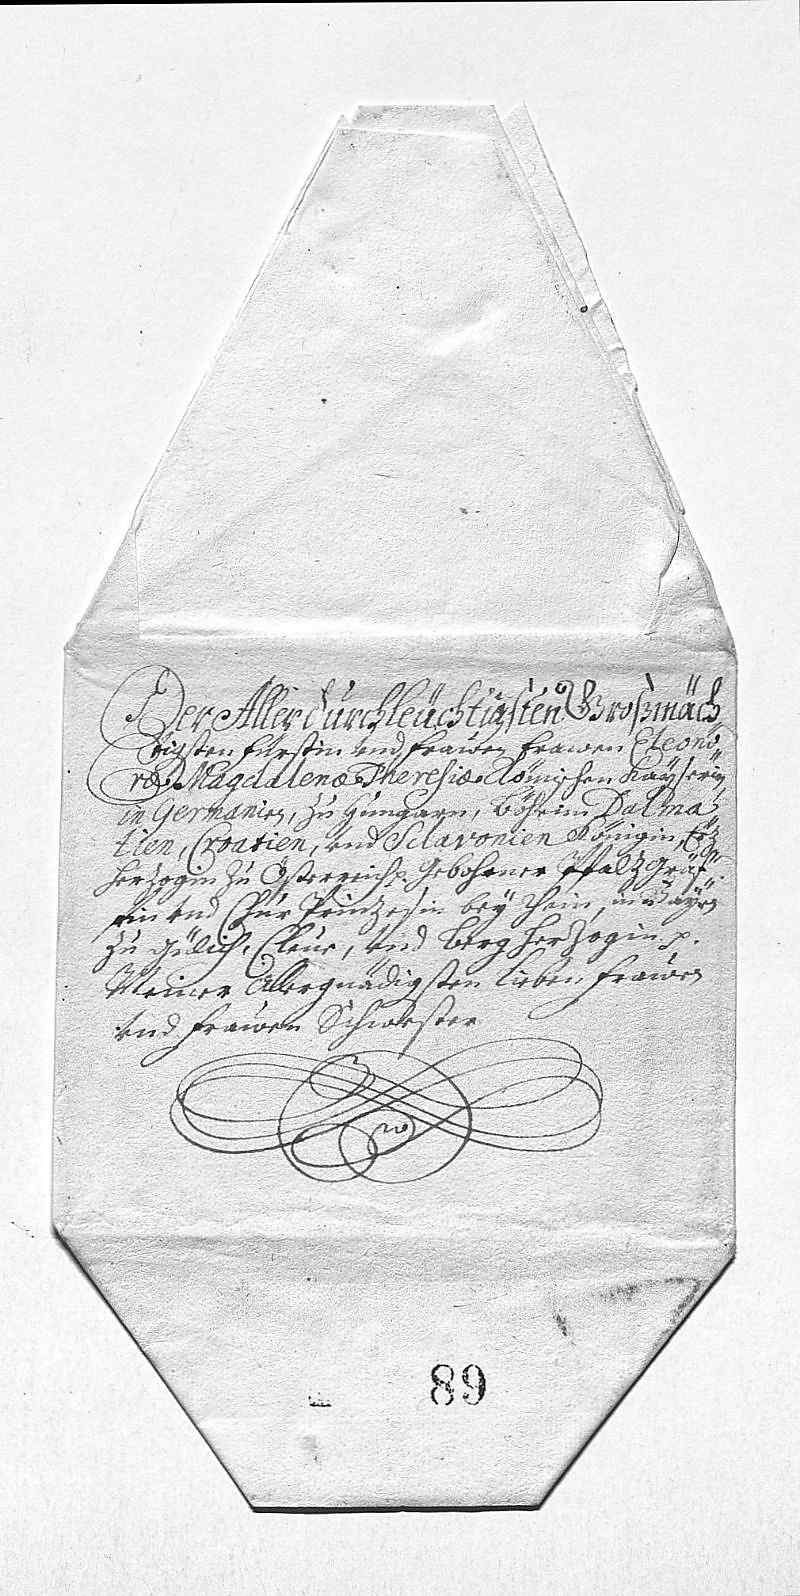 Der Allerdurchleüchtigsten Großmäch
tigsten fürstin vnd frawen frawen Eleono
ræ Magdalenæ Theresiæ Römischen Kayserin
in Germanien, zu Hungarn, Böheim Dalma
tien, Croatien, vnd Sclavonien Königin, Ertz
herzogin zu Österreich p. Gebohrner Pfaltz Gräf
fin vnd Chur Prinzesin bey Rhein, in Bayrn
zu Gülich, Cleue, vnd Berg herzogin p.
Meiner Allergnädigsten lieben frawen
vnd frawen Schwester
89